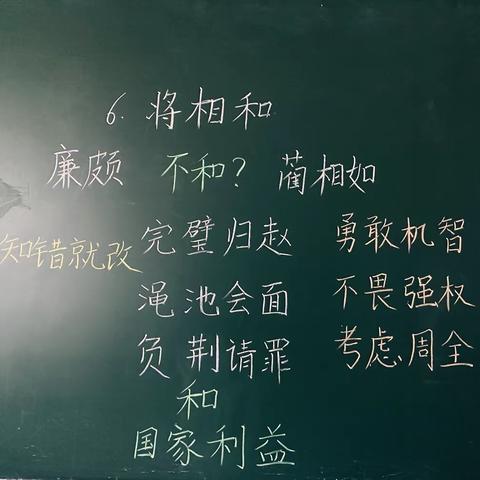 6. 将相和
廉颇 不和? 蔺相如
知错就改 完璧归赵 勇敢机智
渑池会面 不畏强权
负荆请罪 考虑周全
和
国家利益